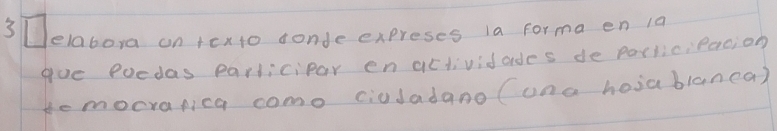 3 elabora un texto donde expreses la forma en la
que puedas participar en actividades de participacion
democratica como ciudadano (una hoja blanca)